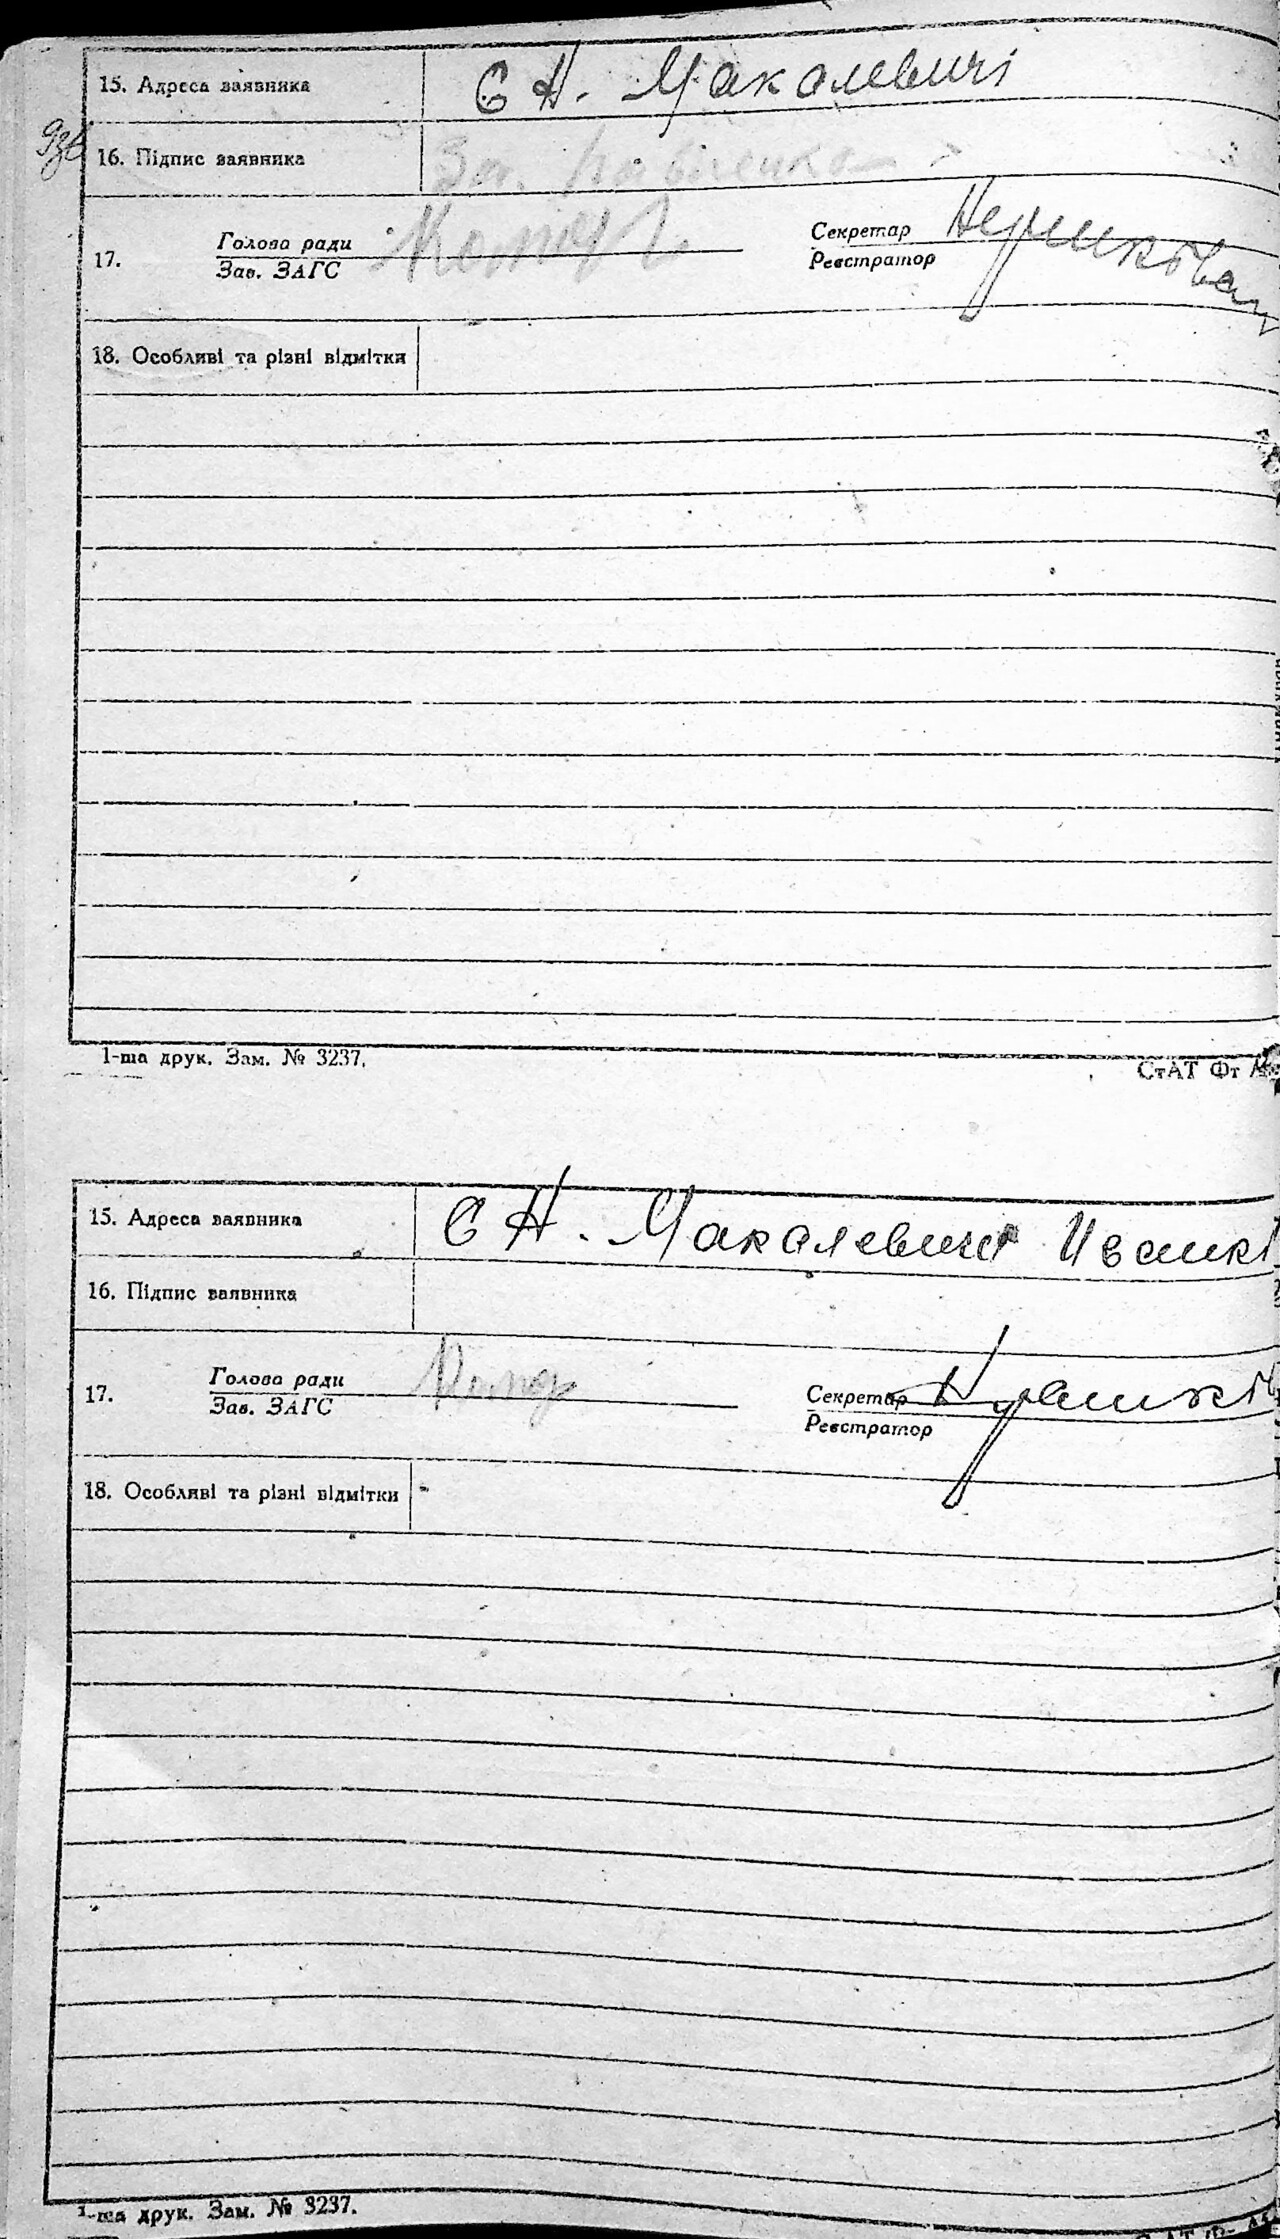 15. Адреса заявника С Н. Макалевичі
16. Підпис заявника За.
17. Голова ради Секретар
Зав. ЗАГС Реєстратор
18. Особливі та різні відмітки
1-ша друк. Зам. № 3237. СтАТ Фт
15. Адреса заявника С Н. Макалевичі Иванкі
16. Підпис заявника
17. Голова ради Секретар
Зав. ЗАГС Реєстратор
18. Особливі та різні відмітки
1-ша друк. Зам. № 3237.